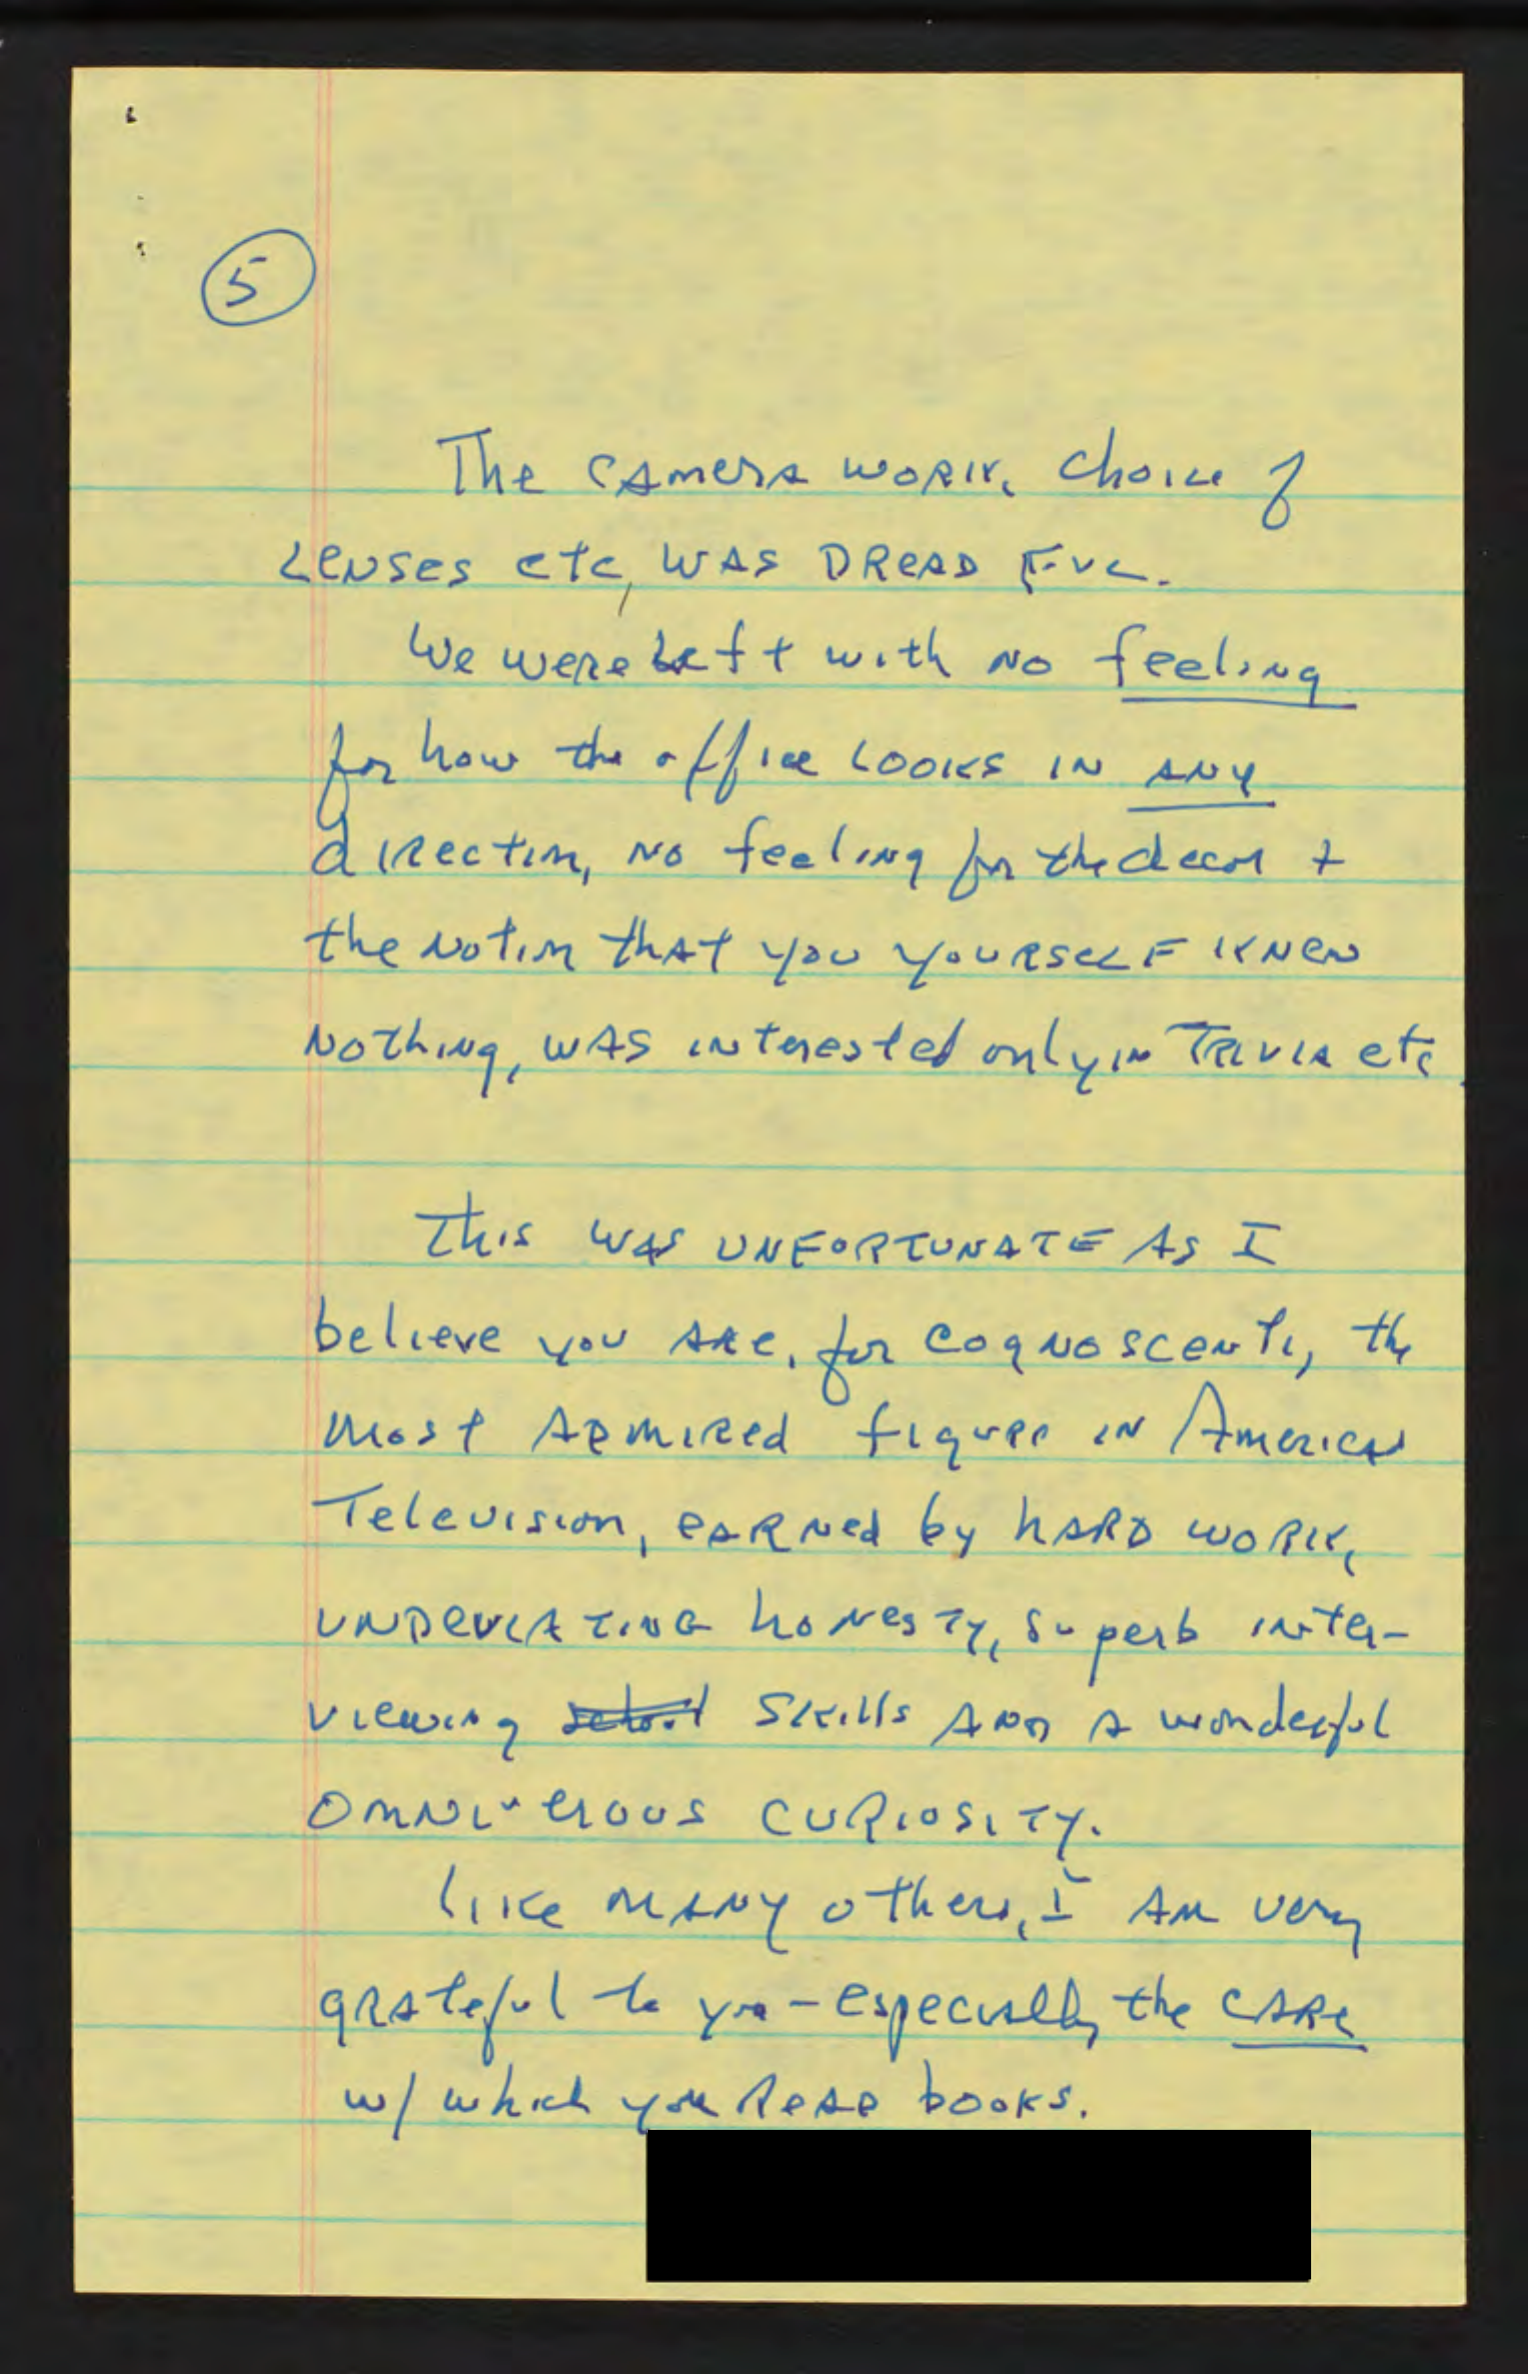 5
The camera work, choice of
lenses etc, was dreadful.
We were left with no feeling
for how the office looks in any
direction, no feeling for the decor +
the notion that you yourself knew
nothing, was interested only in Trivia etc.
This was unfortunate as I
believe you are, for cognoscenti, the
most admired figure in American
Television, earned by hard work,
undeviating honesty, superb inter-
viewing skills and a wonderful
omniverous curiosity.
like many others, I am very
grateful to you - especially the care
w/ which you read books.